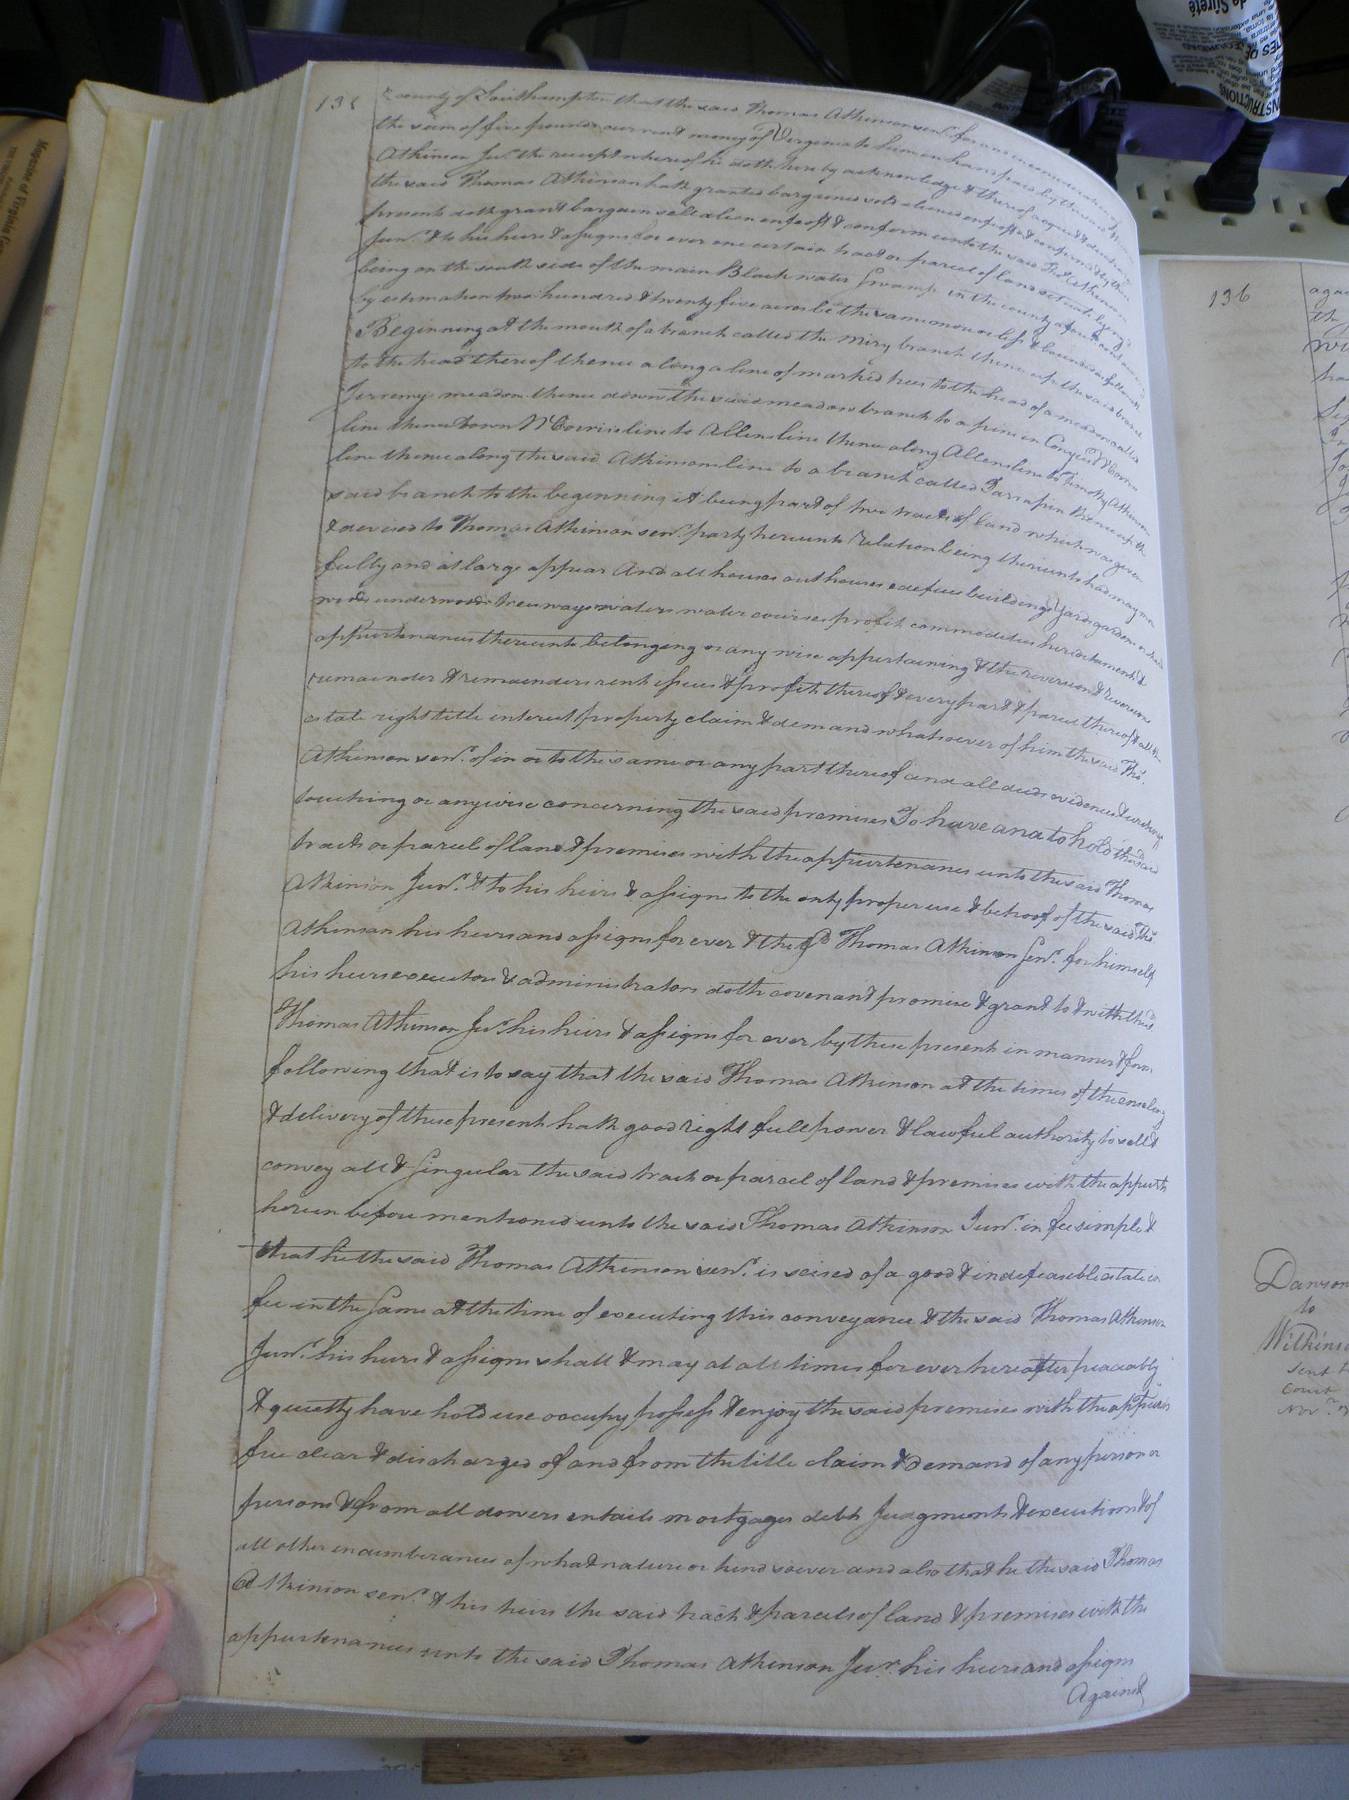 135
county of Southampton that the said Thomas Atkinson senr. for and in consideration of
the sum of five pounds current money of Virginia to him in hand paid by the said Thomas
Atkinson Junr. the receipt whereof he doth hereby acknowledge & thereof acquit & discharge
the said Thomas Atkinson hath granted bargained sold aliened enfeofft & confirmed & by these
presents doth grant bargain sell alien enfeofft & conform unto the said Thos. Atkinson
Junr. & to his heirs & assigns for ever one certain tract or parcel of land situate lying &
being on the south side of the main Black water Swamp in the county aforesaid
by estimation two hundred & twenty five acres be the same more or less & bounded as followeth
Beginning at the mouth of a branch called the Miry branch thence up the said branch
to the head thereof thence along a line of marked trees to the head of a meadow called
Jerremys meadow thence down the said meadow branch to a pine in
line thence down line to Allens line thence along Allens line to Timothy Atkinsons
line thence along the said Atkinsons line to a branch called Tarrapin thence up the
said branch to the beginning it being part of two tracts of land which was given
& devised to Thomas Atkinson senr. party hereunto Relation being thereunto had may more
fully and at large appear And all houses outhouses edefices buildings Yards gardens orchards
woods underwoods trees ways waters water courses profits commodities hereditaments &
appurtenances thereunto belonging or any wise appertaining & the reversion & reversions
remainder & remainders rents issues & profits thereof & every part & parcel thereof & all the
estate right title interest property claim & demand whatsoever of him the said Thos.
Atkinson senr. of in or to the same or any part thereof and all deeds evidences & writings
touching or anywise concerning the said premises To have and to hold the said
tract or parcel of land & premises with the appurtenances unto the said Thomas
Atkinson Junr. & to his heirs & assigns to the only proper use & behoof of the said Thos.
Atkinson his heirs and assigns for ever & the sd. Thomas Atkinson Senr. for himself
his heirs executors & administrators doth covenant promise & grant to & with the sd.
Thomas Atkinson Jur. his heirs & assigns for ever by these present in manner & form
following that is to say that the said Thomas Atkinson at the times of the ensealing
& delivery of these present hath good right full power & lawful authority to sell &
convey all & Singular the said tract or parcel of land & premises with the appurts
herein before mentioned unto the said Thomas Atkinson Junr. in fee simple &
that he the said Thomas Atkinson senr. is seised of a good & indefeasible estate in
fee in the same at the time of executing this conveyance & the said Thomas Atkinson
Junr. his heirs & assigns shall & may at all times for ever hereafter peaceably
& quietly have hold use occupy possess & enjoy the said premises with the appurts
free clear & discharged of and from the title claim & demand of any person or
persons & from all dowers entails mortgages debts Judgments & executions & of
all other incumberances of what nature or kind soever and also that he the said Thomas
Atkinson senr. & his heirs the said tract & parcels of land & premises with the
appurtenances unto the said Thomas Atkinson Junr. his heirs and assigns
Against
136
Dawson
to
Wilkinson
Sent
Court
Novr.
Magazine of Virginia
INSTRUCTIONS
de Sûreté